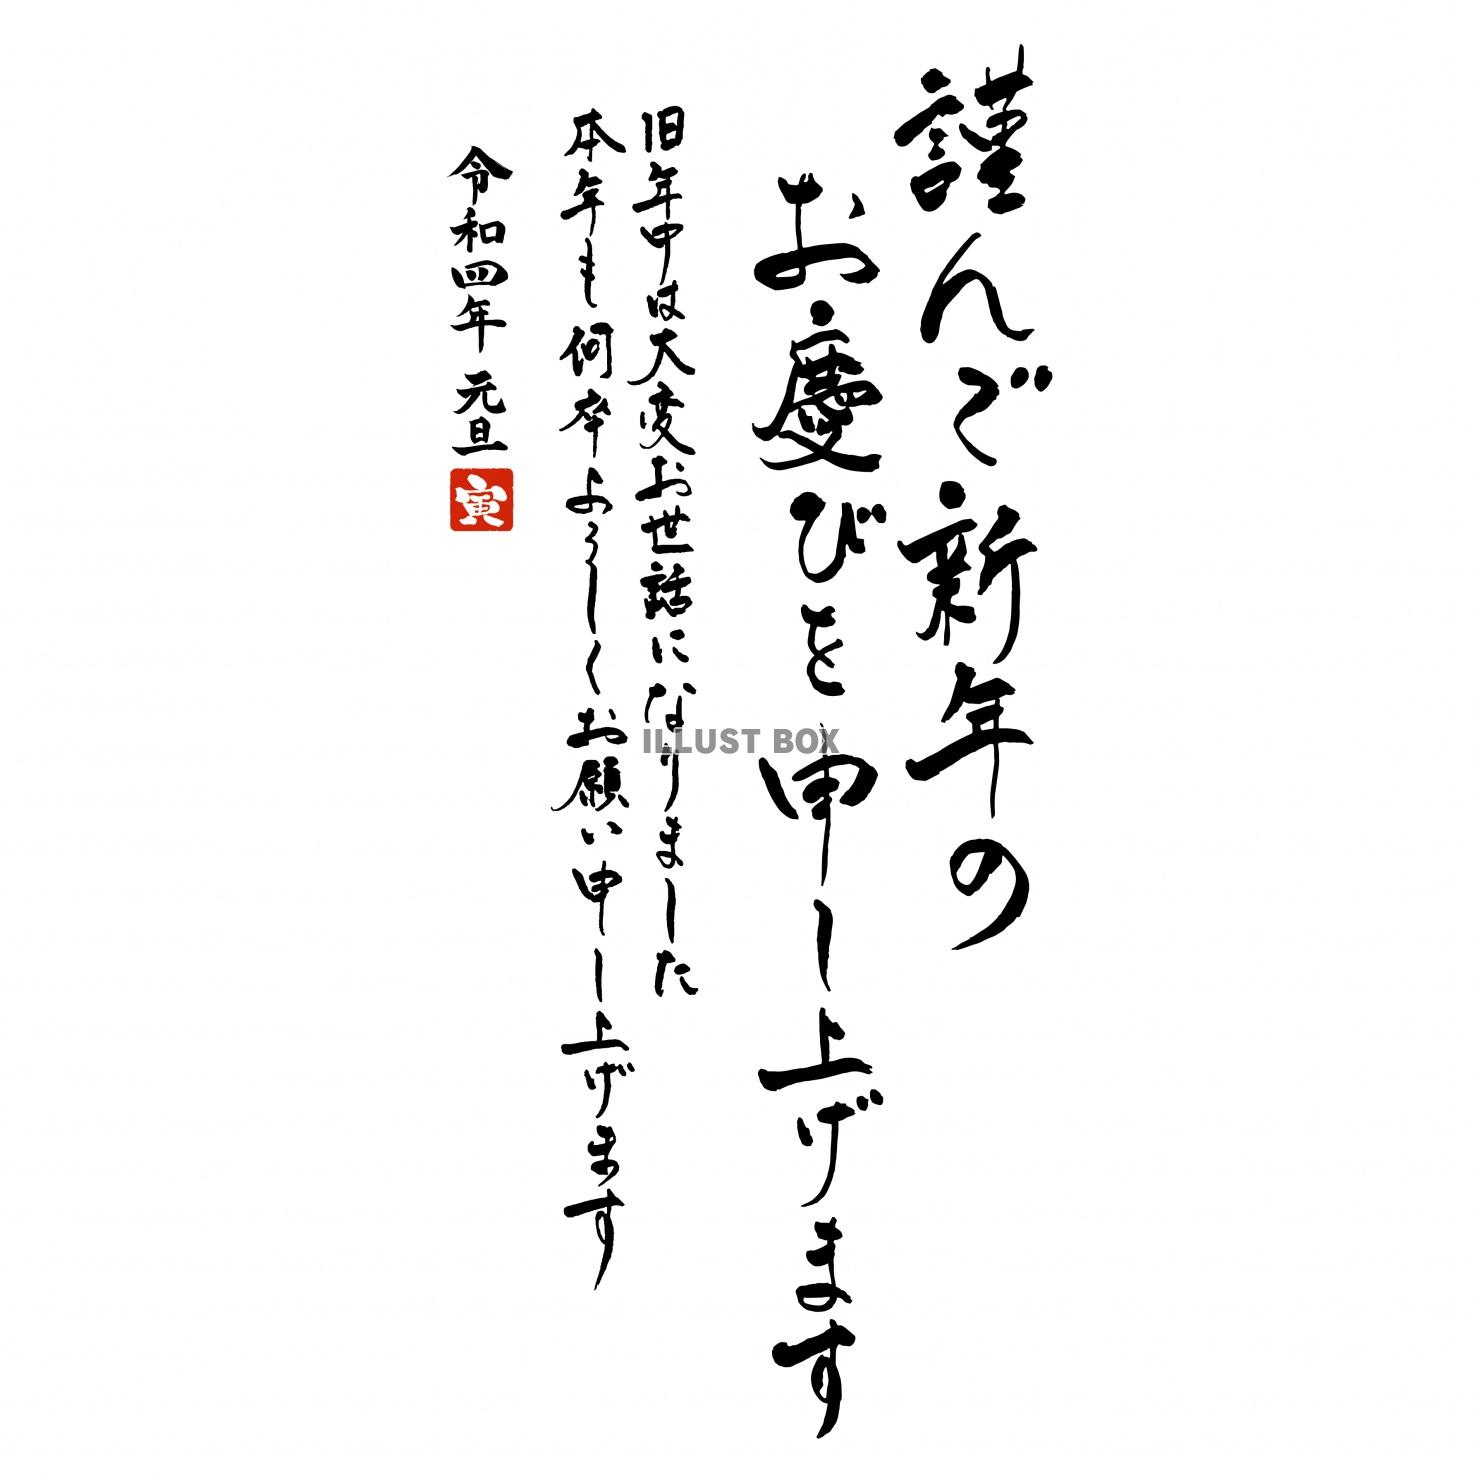 謹んで新年の
お慶びを申し上げます
旧年中は大変お世話になりました
本年も何卒よろしくお願い申し上げます
令和四年 元旦
寅
ILLUST BOX